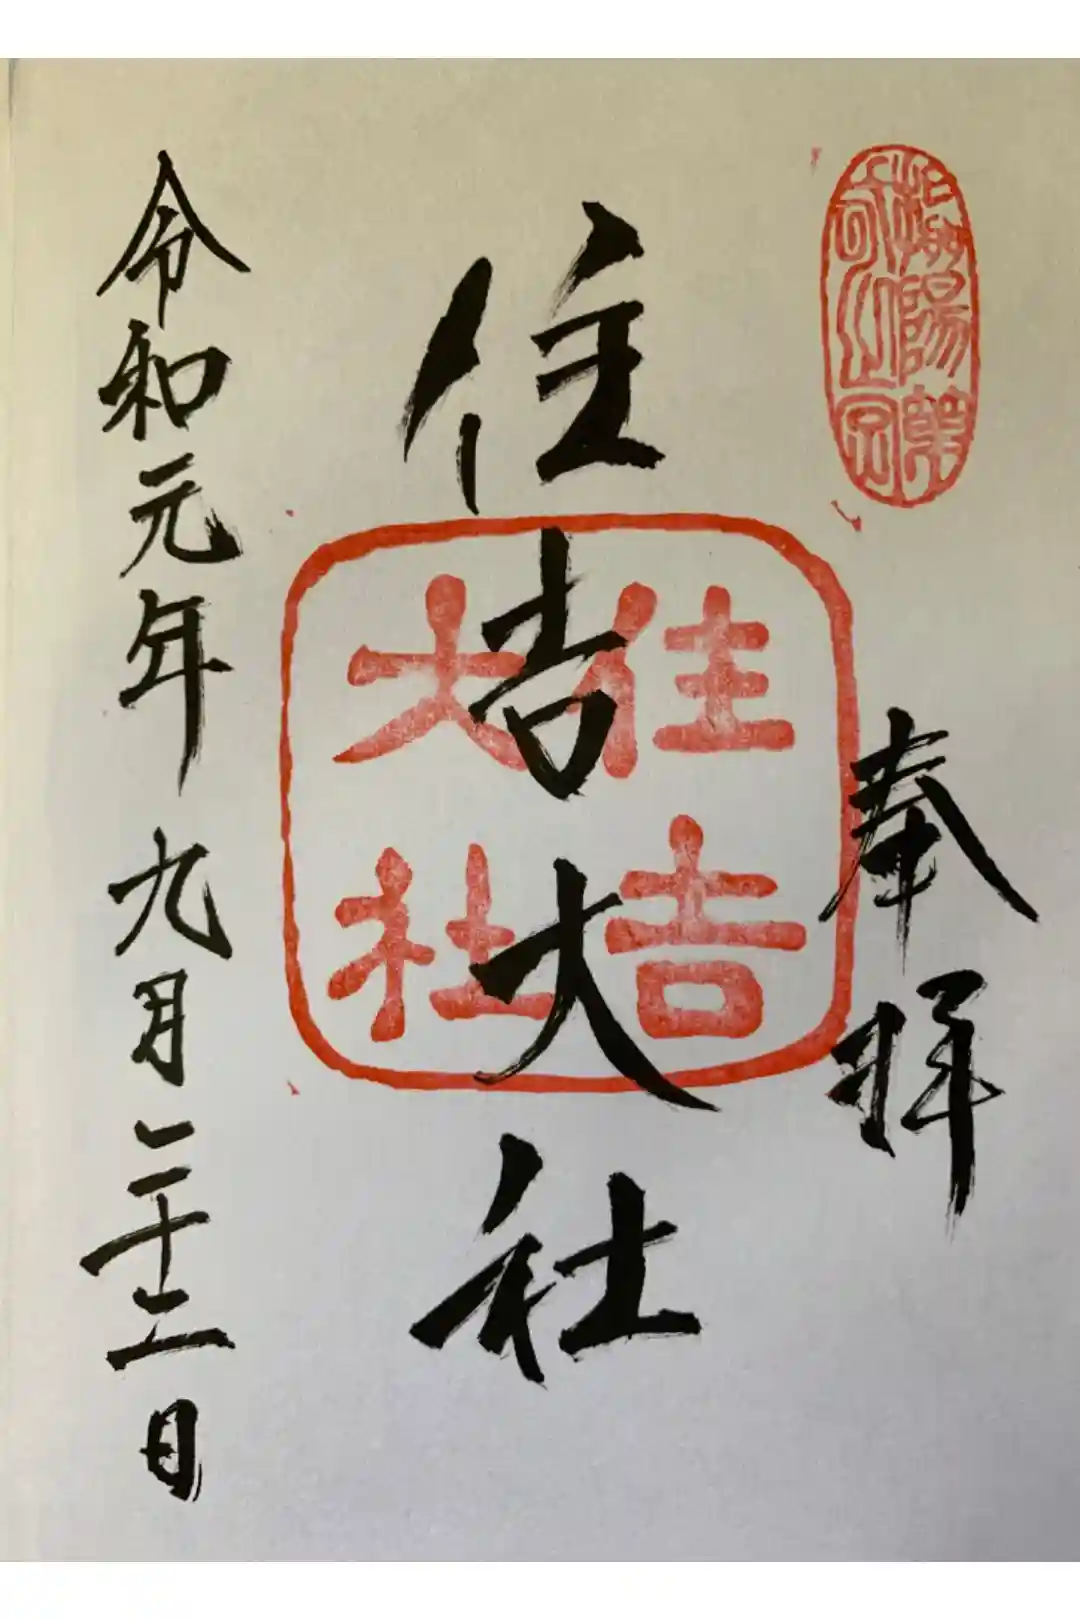 奉拝
住吉大社
住吉
大社
令和元年九月二十二日